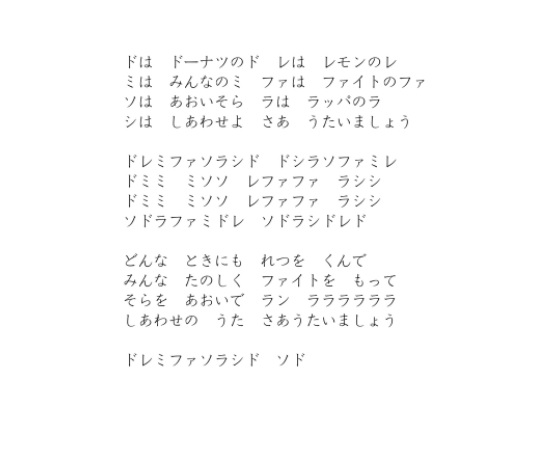 ドは　ドーナツのド　レは　レモンのレ
ミは　みんなのミ　ファは　ファイトのファ
ソは　あおいそら　ラは　ラッパのラ
シは　しあわせよ　さあ　うたいましょう

ドレミファソラシド　ドシラソファミレ
ドミミ　ミソソ　レファファ　ラシシ
ドミミ　ミソソ　レファファ　ラシシ
ソドラファミドレ　ソドラシドレド

どんな　ときにも　れつを　くんで
みんな　たのしく　ファイトを　もって
そらを　あおいで　ラン　ララララララ
しあわせの　うた　さあうたいましょう

ドレミファソラシド　ソド